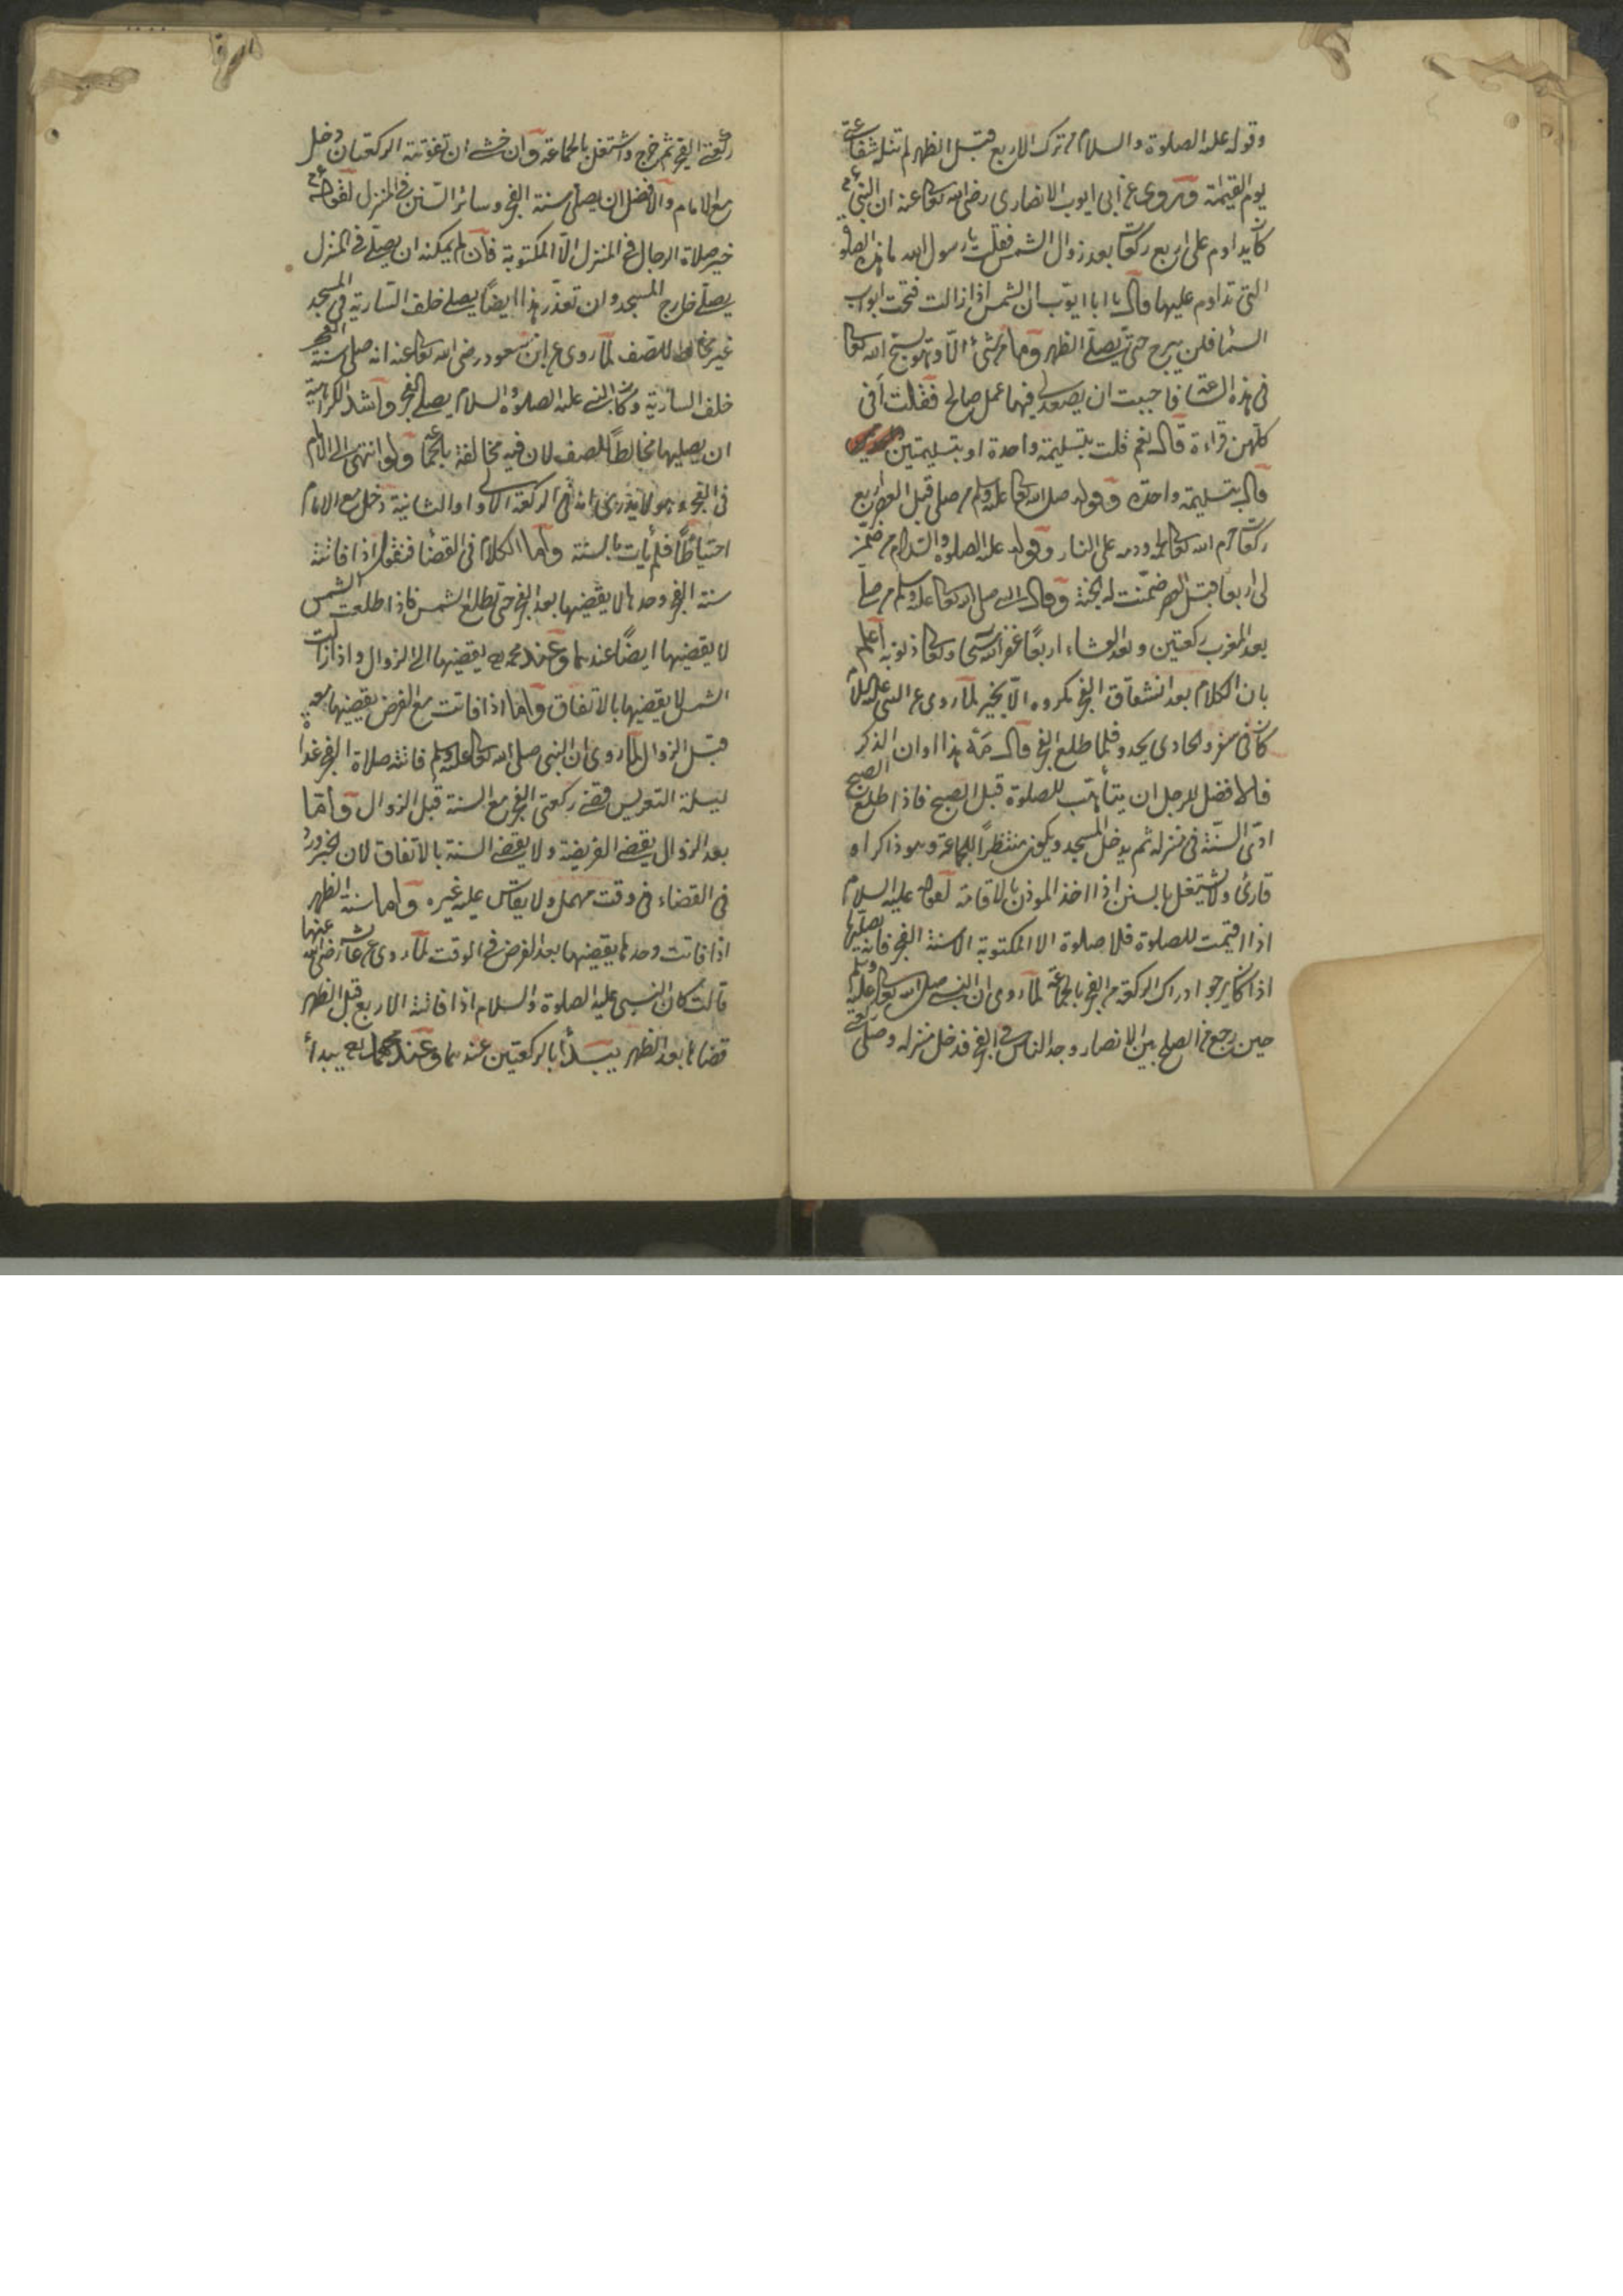 وقوله عليه الصلوة والسلام من ترك الاربع قبل الظهر لم تنله شفاعتى
يوم القيمة وروى عن ابى ايوب الانصارى رضى الله تعالى عنه ان النبى عم
كان يداوم على اربع ركعات بعد زوال الشمس فقلت يا رسول الله ما هذه الصلوة
التى تداوم عليها قال يا ابا ايوب ان الشمس اذا زالت فتحت ابواب
السماء فلن يبرح حتى يصلى الظهر وما من شئ الا وهو يسبح الله تعالى
فى هذه الساعة فاحببت ان يصعد لى فيها عمل صالح فقلت أفى
كلهن قراءة قال نعم قلت بتسليمة واحدة او بتسليمتين
قال بتسليمة واحدة وقوله صلى الله تعالى عليه وسلم من صلى قبل العصر اربع
ركعات حرم الله تعالى لحمه ودمه على النار وقوله عليه الصلوة والسلام من ضمن
لى اربعا قبل العصر ضمنت له الجنة وقال النبى صلى الله تعالى عليه وسلم من صلى
بعد المغرب ركعتين وبعد العشاء اربعًا غفر الله سبحانه وتعالى ذنوبه اعلم
بان الكلام بعد انشقاق الفجر مكروه الا بخير لما روى عن النبى عليه السلام
كان فى سفر والحادى يحدو فلما طلع الفجر قال مَهْ هذا اوان الذكر
فالافضل للرجل ان يتأهب للصلوة قبل الصبح فاذا طلع الصبح
ادى السنة فى منزله ثم يدخل المسجد ويكون منتظرًا للجماعة وهو ذاكر او
قارئ ولا يشتغل بالسنن اذا اخذ الموذن بالاقامة لقوله عليه السلام
اذا اقيمت للصلوة فلا صلوة الا المكتوبة الا سنة الفجر فانه يصليها
اذا كان يرجو ادراك الركعة من الفجر بالجماعة لما روى ان النبى صلى الله تعالى عليه وسلم
حين رجع من الصلح بين الانصار وجد الناس فى الفجر فدخل منزله وصلى ركعتى
ركعتى الفجر ثم خرج واشتغل بالجماعة وان خشى ان تفوتته الركعتان دخل
مع الامام والافضل ان يصلى سنة الفجر وسائر السنن فى المنزل لقوله عم
خير صلاة الرجال فى المنزل الا المكتوبة فان لم يمكنه ان يصلى فى المنزل
يصلى خارج المسجد وان تعذر هذا ايضًا يصلى خلف السارية فى المسجد
غير مخالط للصف لما روى عن ابن مسعود رضى الله تعالى عنه انه صلى سنة الفجر
خلف السارية وكان النبى عليه الصلوة والسلام يصلى الفجر واشد الكراهية
ان يصليها مخالطًا للصف لان فيه مخالفة بالجماعة ولو انتهى الى الامام
فى الفجر وهو لا يدرى انه فى الركعة الاولى او الثانية دخل مع الامام
احتياطًا فلم يأت بالسنة واما الكلام فى القضاء فنقول اذا فاتته
سنة الفجر وحدها لا يقضيها بعد الفجر حتى تطلع الشمس فاذا طلعت الشمس
لا يقضيها ايضًا عندهما وعند محمد رح يقضيها الى الزوال واذا زالت
الشمس لا يقضيها بالاتفاق واما اذا فاتت مع الفرض يقضيها معه
قبل الزوال لما روى ان النبى صلى الله تعالى عليه وسلم فاتته صلاة الفجر غداة
ليلة التعريس فقضى ركعتى الفجر مع السنة قبل الزوال واما
بعد الزوال يقضى الفريضة ولا يقضى السنة بالاتفاق لان الخبر ورد
فى القضاء فى وقت مهمل ولا يقاس عليه غيره واما سنة الظهر
اذا فاتت وحدها يقضيها بعد الفرض فى الوقت لما روى عن عائشة رضى الله عنها
قالت كان النبى عليه الصلوة والسلام اذا فاتته الاربع قبل الظهر
قضاها بعد الظهر يبدأ بالركعتين عندهما وعند محمد رح يبدأ